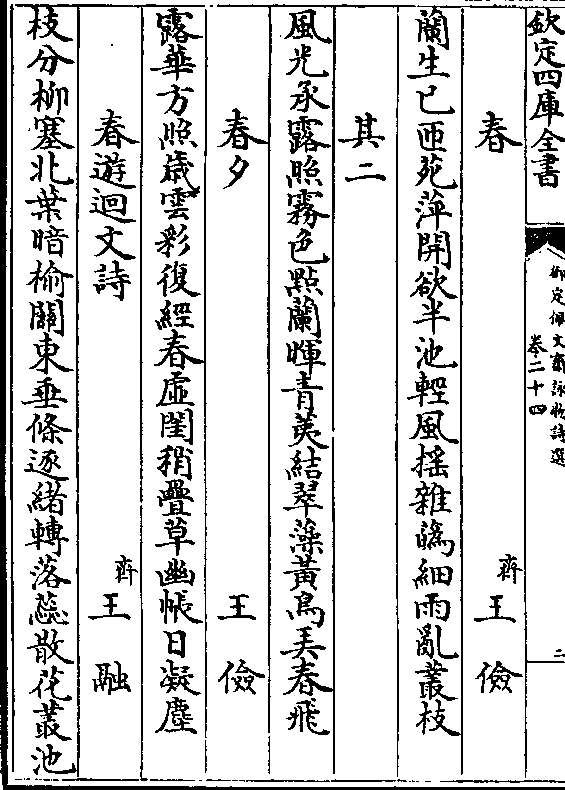 欽定四庫全書
御定佩文齋詠物詩選
卷二十四
二
春
齊
王儉
蘭生已匝苑萍開欲半池輕風揺雜蘤細雨亂叢枝
其二
風光承露照霧色點蘭暉青荑結翠藻黃鳥弄春飛
春夕
王儉
露華方照歳雲彩復經春虛閨稍疊草幽帳日凝塵
春遊迴文詩
齊
王融
枝分柳塞北葉暗榆關東垂條逐緒轉落蕊散花叢池